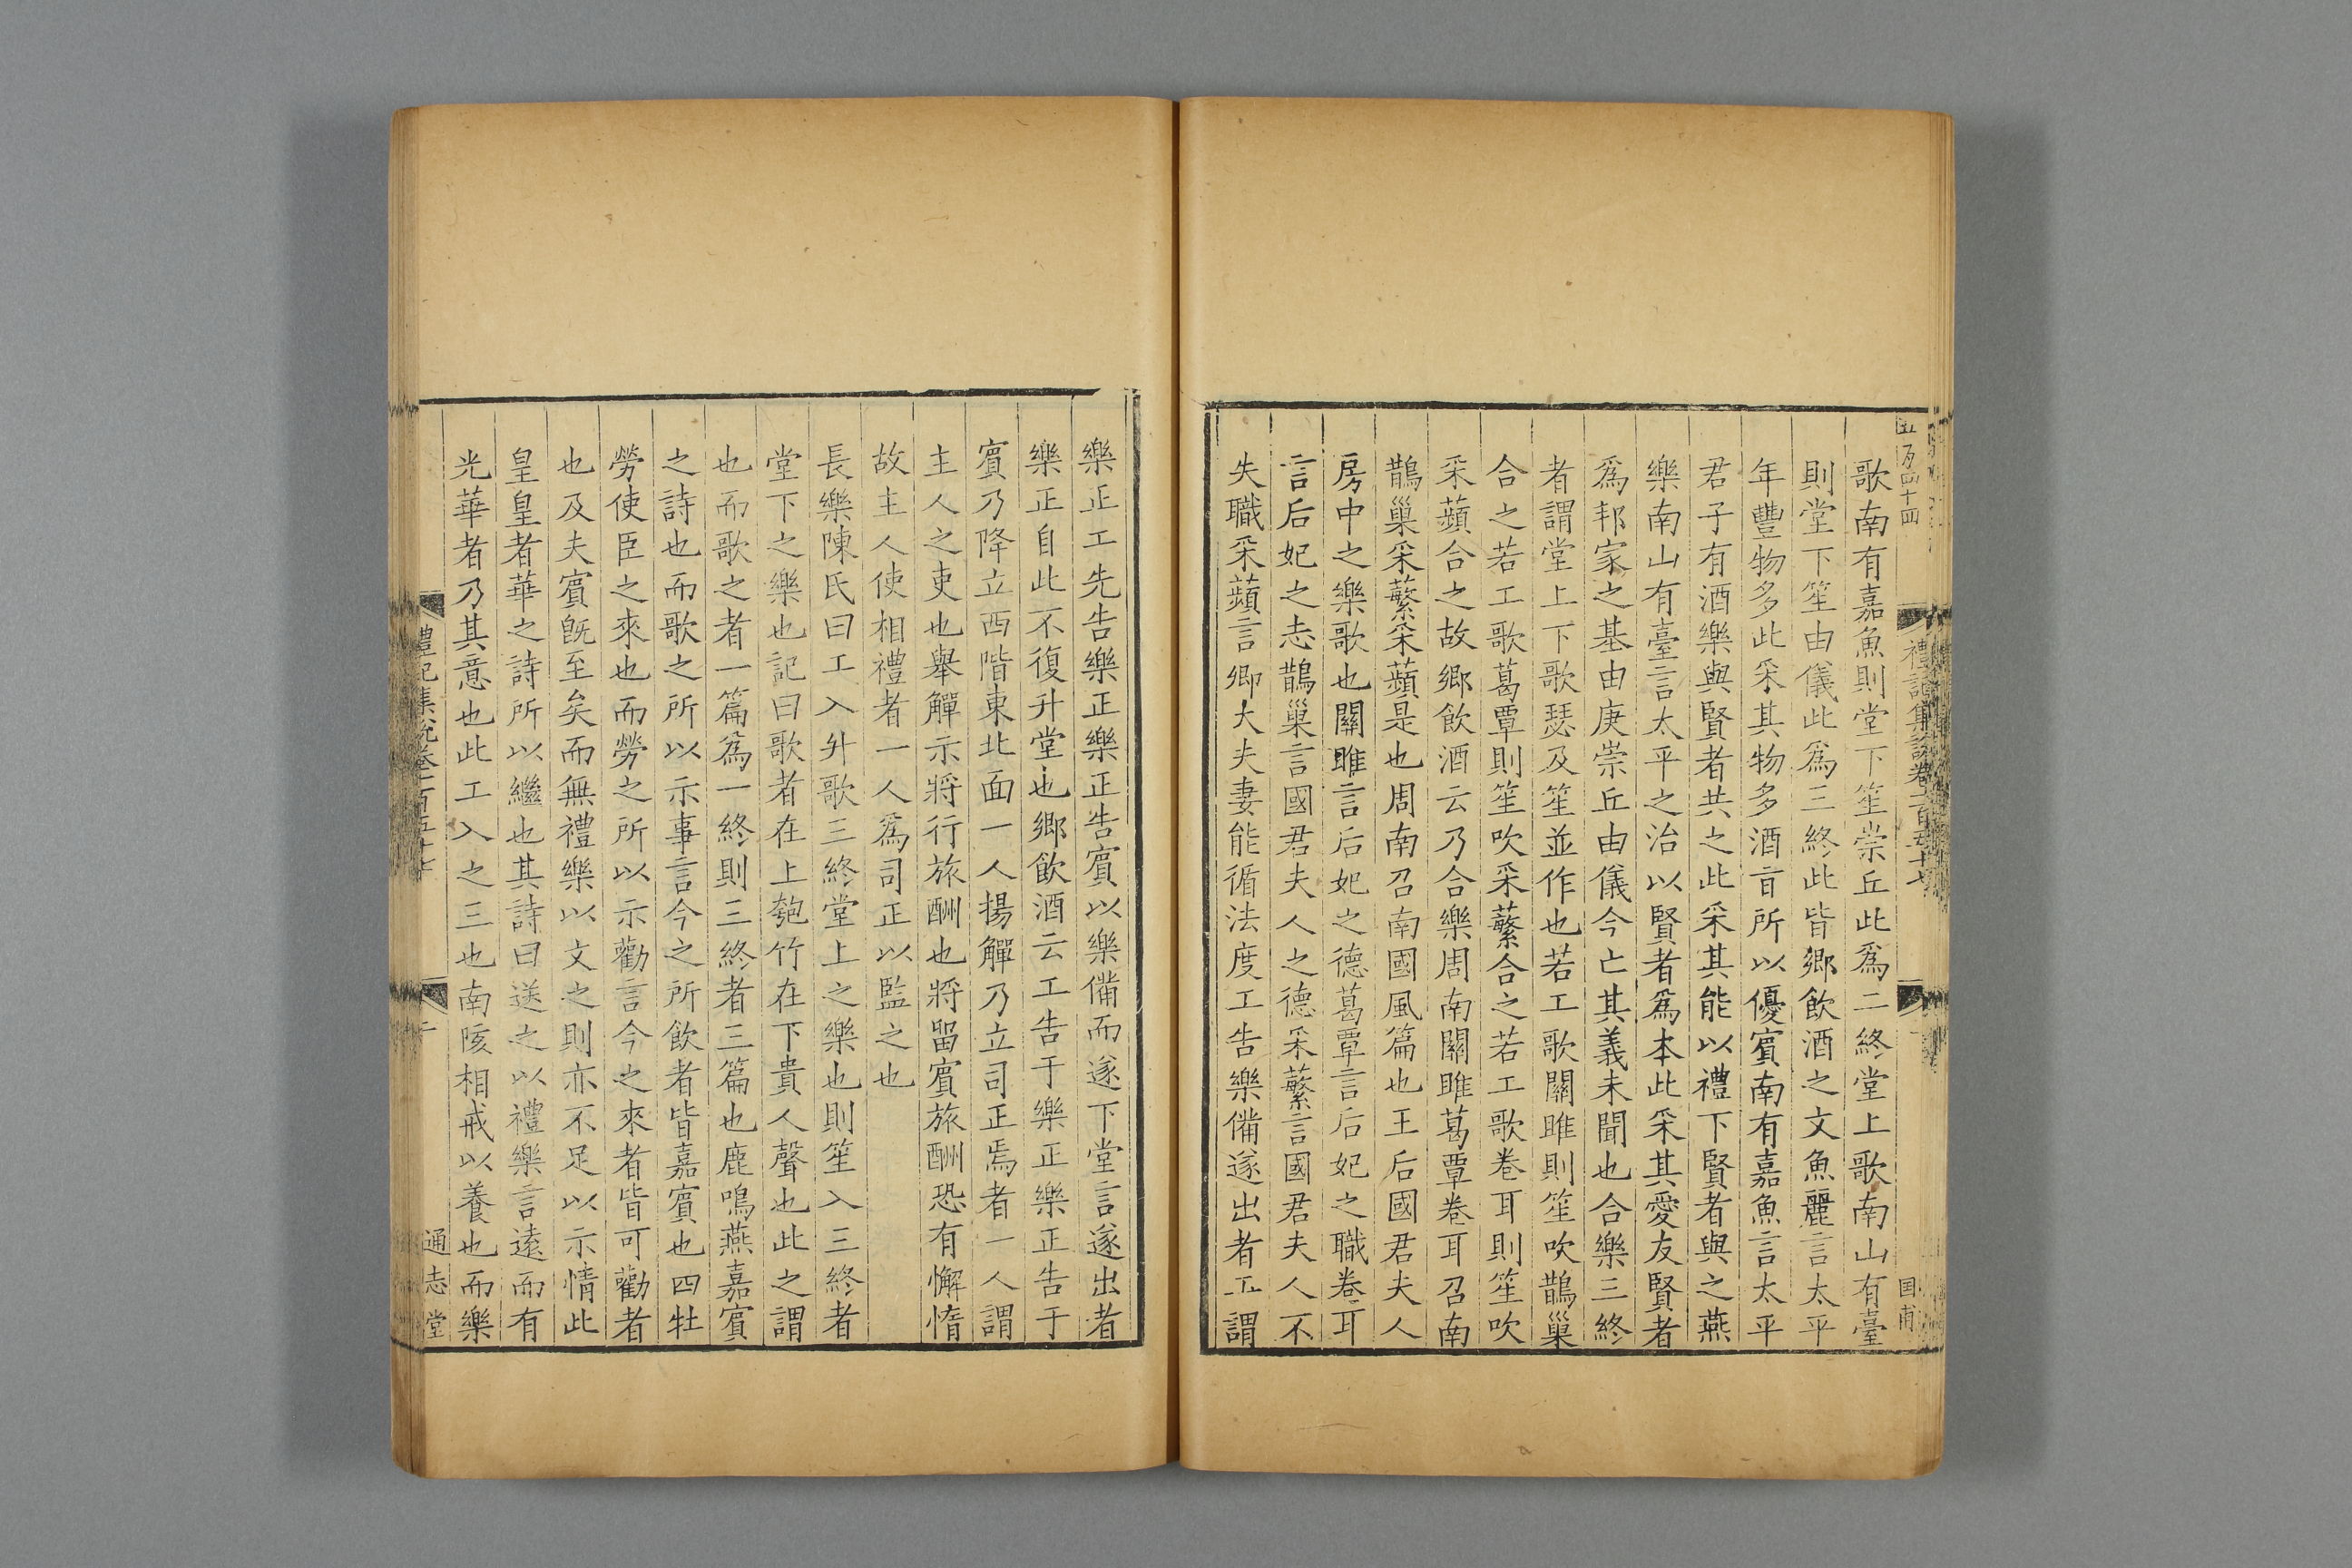 歌南有嘉魚則堂下笙崇丘此爲二終堂上歌南山有臺
則堂下笙由儀此爲三終此皆鄉飲酒之文魚麗言太平
年豐物多此采其物多酒旨所以優賓南有嘉魚言太平
君子有酒樂與賢者共之此采其能以禮下賢者與之燕
樂南山有臺言太平之治以賢者爲本此采其愛友賢者
爲邦家之基由庚崇丘由儀今亡其義未聞也合樂三終
者謂堂上下歌瑟及笙並作也若工歌關雎則笙吹鵲巢
合之若工歌葛覃則笙吹采蘩合之若工歌卷耳則笙吹
采蘋合之故鄉飲酒云乃合樂周南關雎葛覃卷耳召南
鵲巢采蘩采蘋是也周南召南國風篇也王后國君夫人
房中之樂歌也關雎言后妃之德葛覃言后妃之職卷耳
言后妃之志鵲巢言國君夫人之德采蘩言國君夫人不
失職采蘋言卿大夫妻能循法度工告樂備遂出者工謂
樂正工先告樂正樂正告賓以樂備而遂下堂言遂出者
樂正自此不復升堂也鄉飲酒云工告于樂正樂正告于
賓乃降立西階東北面一人揚觶乃立司正焉者一人謂
主人之吏也舉觶示將行旅酬也將留賓旅酬恐有懈惰
故主人使相禮者一人爲司正以監之也
長樂陳氏曰工入升歌三終堂上之樂也則笙入三終者
堂下之樂也記曰歌者在上匏竹在下貴人聲也此之謂
也而歌之者一篇爲一終則三終者三篇也鹿鳴燕嘉賓
之詩也而歌之所以示事言今之所飲者皆嘉賓也四牡
勞使臣之來也而勞之所以示勸言今之來者皆可勸者
也及夫賓旣至矣而無禮樂以文之則亦不足以示情此
皇皇者華之詩所以繼也其詩曰送之以禮樂言遠而有
光華者乃其意也此工入之三也南陔相戒以養也而樂
禮記集說卷一百五十七
通志堂